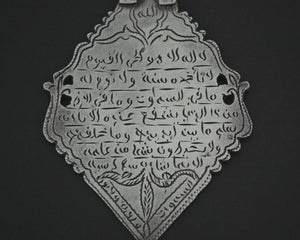 الله
لا اله الا هو الحي القيوم
لا تاخذه سنة ولا نوم له
ما في السموت وما في الارض
من ذا الذي يشفع عنده الا باذنه
يعلم ما بين يديهم وما خلفهم
ولا يحيطون بشي من علمه
الا بما شا وسع كرسيه
السموات